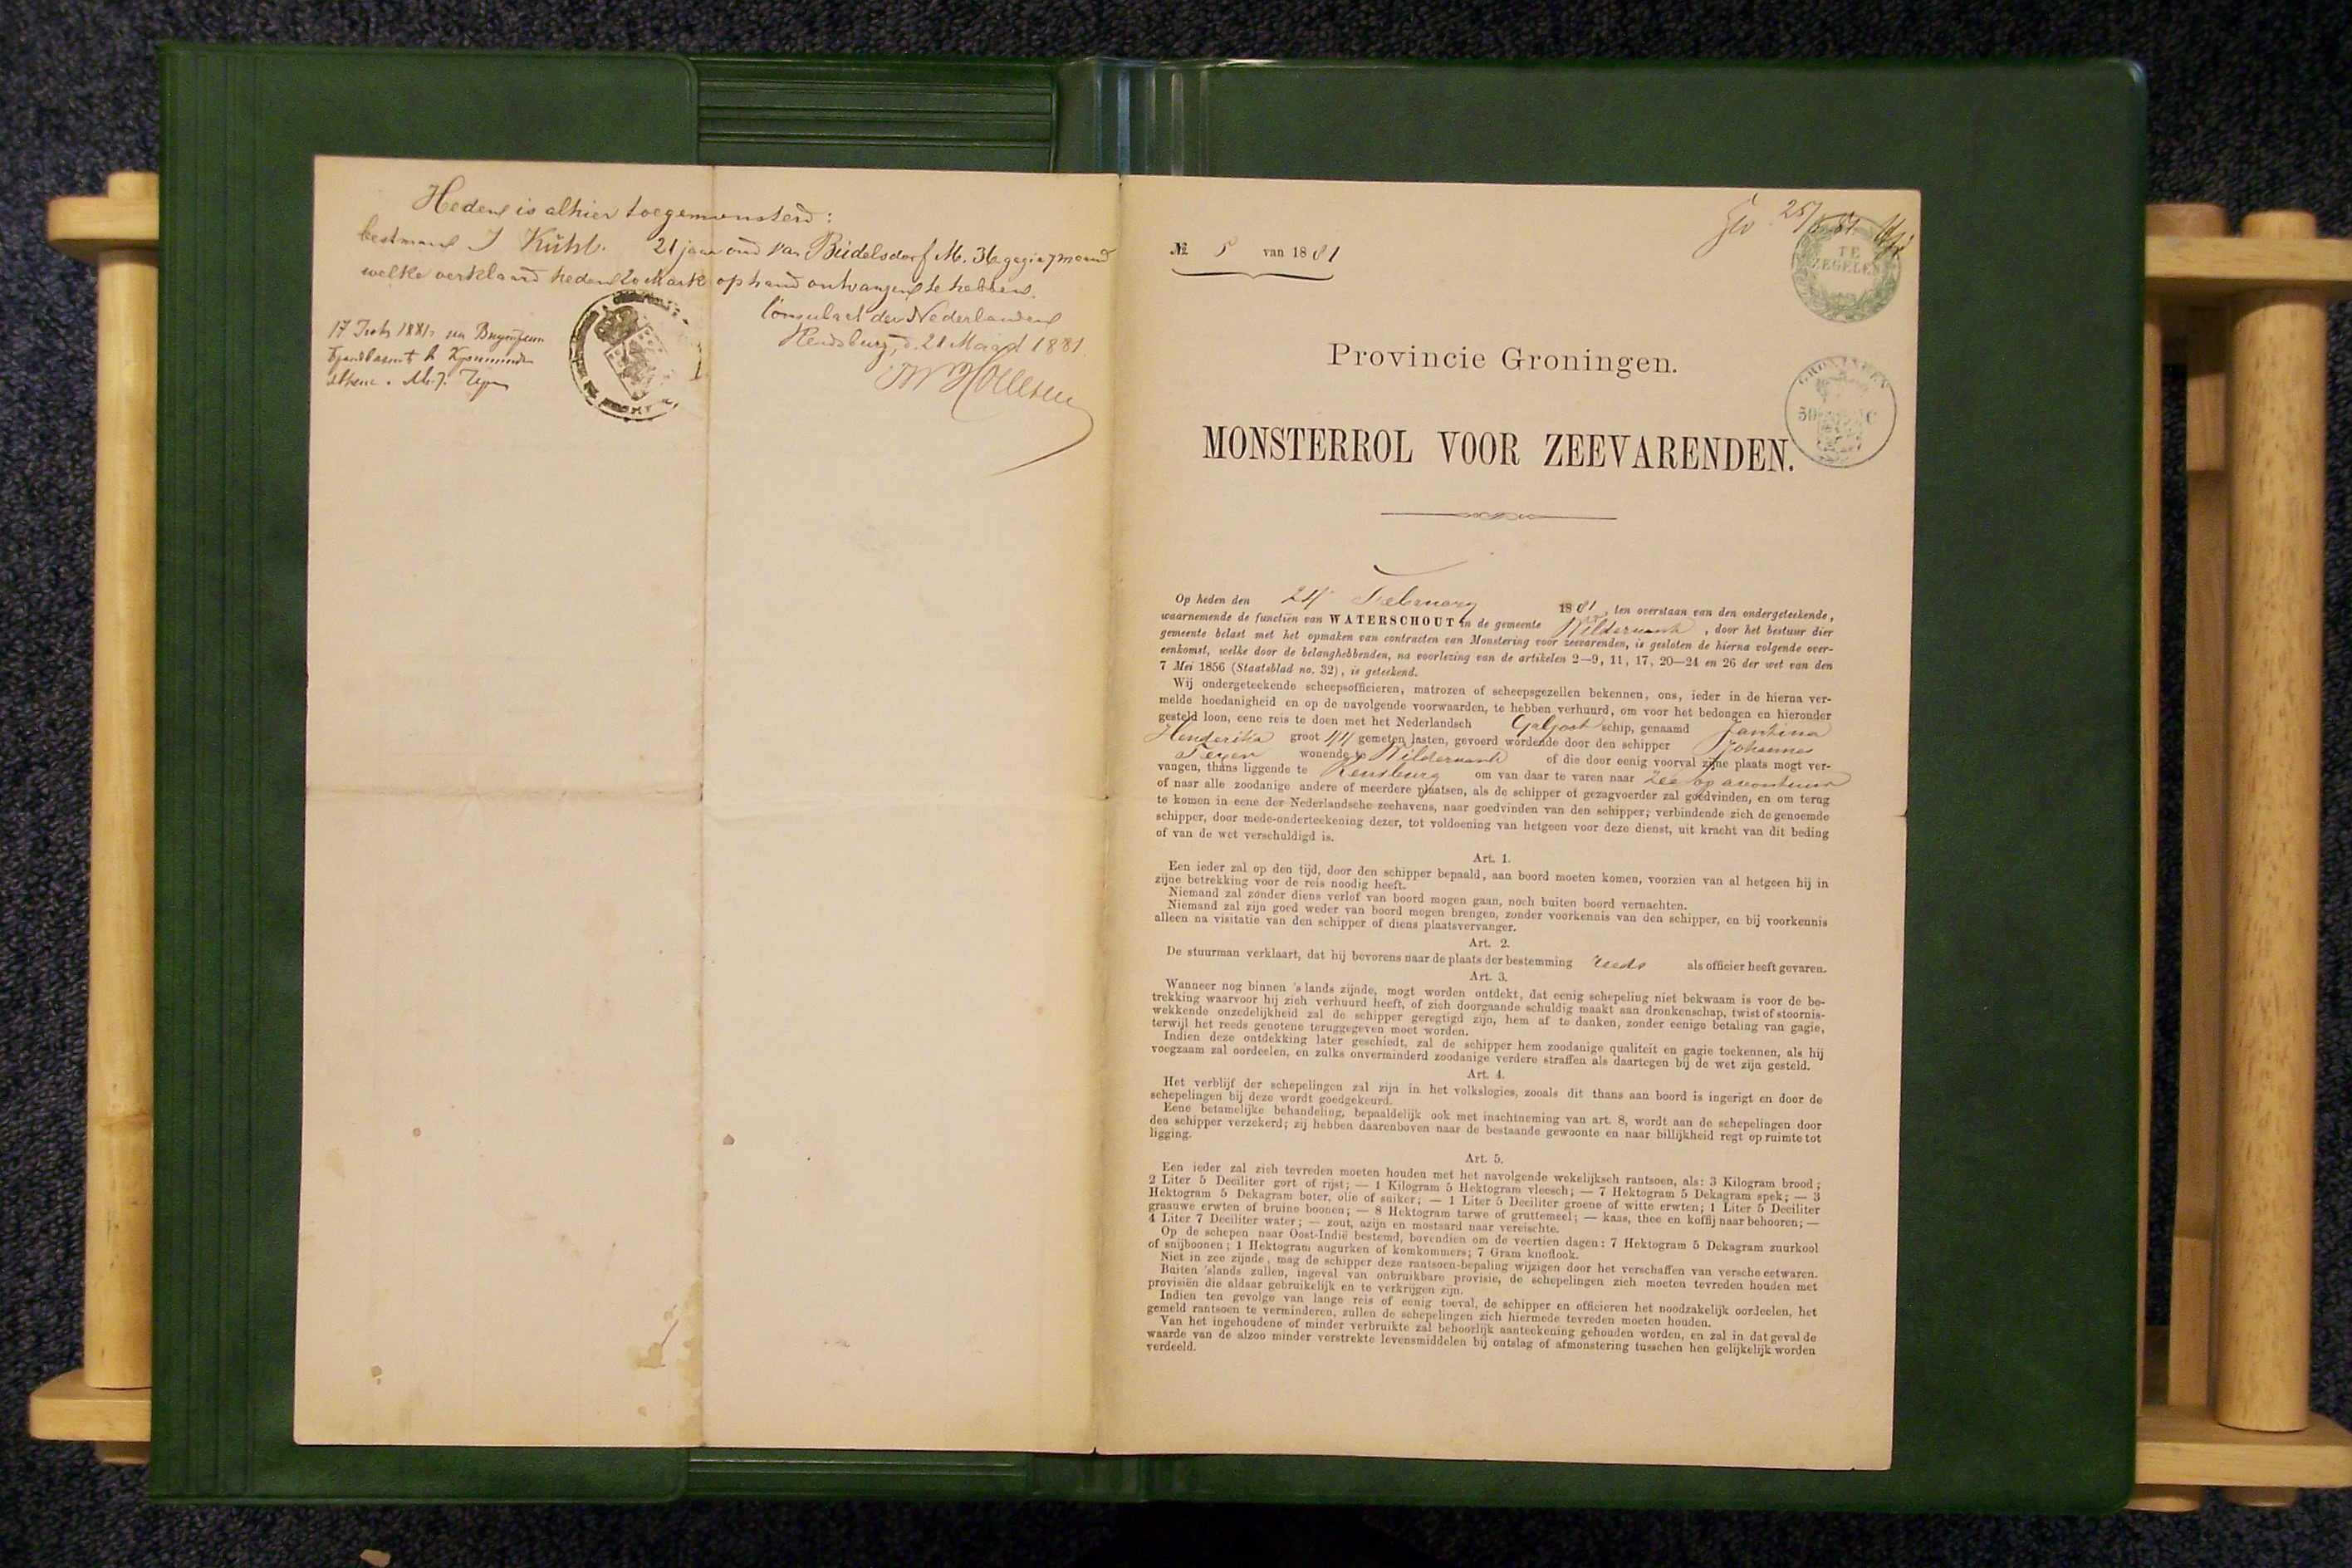 Heden is alhier toegemonsterd:
bestman J Kühl. 21 jaar oud van Büdelsdorf M. 36 gagie p maand
welke verklaard heden 20 Mark op hand ontvangen te hebben.
Consulaat der Nederlanden
Rendsburg, d. 21 Maart 1881
17 1881
№ 5 van 1881
25/ 81
TE
ZEGELEN
GRONINGEN
50 C
Provincie Groningen.
MONSTERROL VOOR ZEEVARENDEN.
Op heden den 24 February 1881, ten overstaan van den ondergeteekende,
waarnemende de functiën van WATERSCHOUT in de gemeente Wildervank, door het bestuur dier
gemeente belast met het opmaken van contracten van Monstering voor zeevarenden, is gesloten de hierna volgende over-
eenkomst, welke door de belanghebbenden, na voorlezing van de artikelen 2—9, 11, 17, 20—24 en 26 der wet van den
7 Mei 1856 (Staatsblad no. 32), is geteekend.
Wij ondergeteekende scheepsofficieren, matrozen of scheepsgezellen bekennen, ons, ieder in de hierna ver-
melde hoedanigheid en op de navolgende voorwaarden, te hebben verhuurd, om voor het bedongen en hieronder
gesteld loon, eene reis te doen met het Nederlandsch Galjoot schip, genaamd Jantina
Henderika groot gemeten lasten, gevoerd wordende door den schipper Johannes
wonende te Wildervank of die door eenig voorval zijne plaats mogt ver-
vangen, thans liggende te Rensburg om van daar te varen naar Zee op avontuur
of naar alle zoodanige andere of meerdere plaatsen, als de schipper of gezagvoerder zal goedvinden, en om terug
te komen in eene der Nederlandsche zeehavens, naar goedvinden van den schipper; verbindende zich de genoemde
schipper, door mede-onderteekening dezer, tot voldoening van hetgeen voor deze dienst, uit kracht van dit beding
of van de wet verschuldigd is.
Art. 1.
Een ieder zal op den tijd, door den schipper bepaald, aan boord moeten komen, voorzien van al hetgeen hij in
zijne betrekking voor de reis noodig heeft.
Niemand zal zonder diens verlof van boord mogen gaan, noch buiten boord vernachten.
Niemand zal zijn goed weder van boord mogen brengen, zonder voorkennis van den schipper, en bij voorkennis
alleen na visitatie van den schipper of diens plaatsvervanger.
Art. 2.
De stuurman verklaart, dat hij bevorens naar de plaats der bestemming reeds als officier heeft gevaren.
Art. 3.
Wanneer nog binnen 's lands zijnde, mogt worden ontdekt, dat eenig schepeling niet bekwaam is voor de be-
trekking waarvoor hij zich verhuurd heeft, of zich doorgaande schuldig maakt aan dronkenschap, twist of stoornis-
wekkende onzedelijkheid zal de schipper geregtigd zijn, hem af te danken, zonder eenige betaling van gagie,
terwijl het reeds genotene teruggegeven moet worden.
Indien deze ontdekking later geschiedt, zal de schipper hem zoodanige qualiteit en gagie toekennen, als hij
voegzaam zal oordeelen, en zulks onverminderd zoodanige verdere straffen als daartegen bij de wet zijn gesteld.
Art. 4.
Het verblijf der schepelingen zal zijn in het volkslogies, zooals dit thans aan boord is ingerigt en door de
schepelingen bij deze wordt goedgekeurd.
Eene betamelijke behandeling, bepaaldelijk ook met inachtneming van art. 8, wordt aan de schepelingen door
den schipper verzekerd; zij hebben daarenboven naar de bestaande gewoonte en naar billijkheid regt op ruimte tot
ligging.
Art. 5.
Een ieder zal zich tevreden moeten houden met het navolgende wekelijksch rantsoen, als: 3 Kilogram brood;
2 Liter 5 Deciliter gort of rijst; — 1 Kilogram 5 Hektogram vleesch; — 7 Hektogram 5 Dekagram spek; — 3
Hektogram 5 Dekagram boter, olie of suiker; — 1 Liter 5 Deciliter groene of witte erwten; 1 Liter 5 Deciliter
graauwe erwten of bruine boonen; — 8 Hektogram tarwe of gruttemeel; — kaas, thee en koffij naar behooren; —
4 Liter 7 Deciliter water; — zout, azijn en mostaard naar vereischte.
Op de schepen naar Oost-Indië bestemd, bovendien om de veertien dagen: 7 Hektogram 5 Dekagram zuurkool
of snijboonen; 1 Hektogram augurken of komkommers; 7 Gram knoflook.
Niet in zee zijnde, mag de schipper deze rantsoen-bepaling wijzigen door het verschaffen van versche eetwaren.
Buiten 'slands zullen, ingeval van onbruikbare provisie, de schepelingen zich moeten tevreden houden met
provisiën die aldaar gebruikelijk en te verkrijgen zijn.
Indien ten gevolge van lange reis of eenig toeval, de schipper en officieren het noodzakelijk oordeelen, het
gemeld rantsoen te verminderen, zullen de schepelingen zich hiermede tevreden moeten houden.
Van het ingehoudene of minder verbruikte zal behoorlijk aanteekening gehouden worden, en zal in dat geval de
waarde van de alzoo minder verstrekte levensmiddelen bij ontslag of afmonstering tusschen hen gelijkelijk worden
verdeeld.